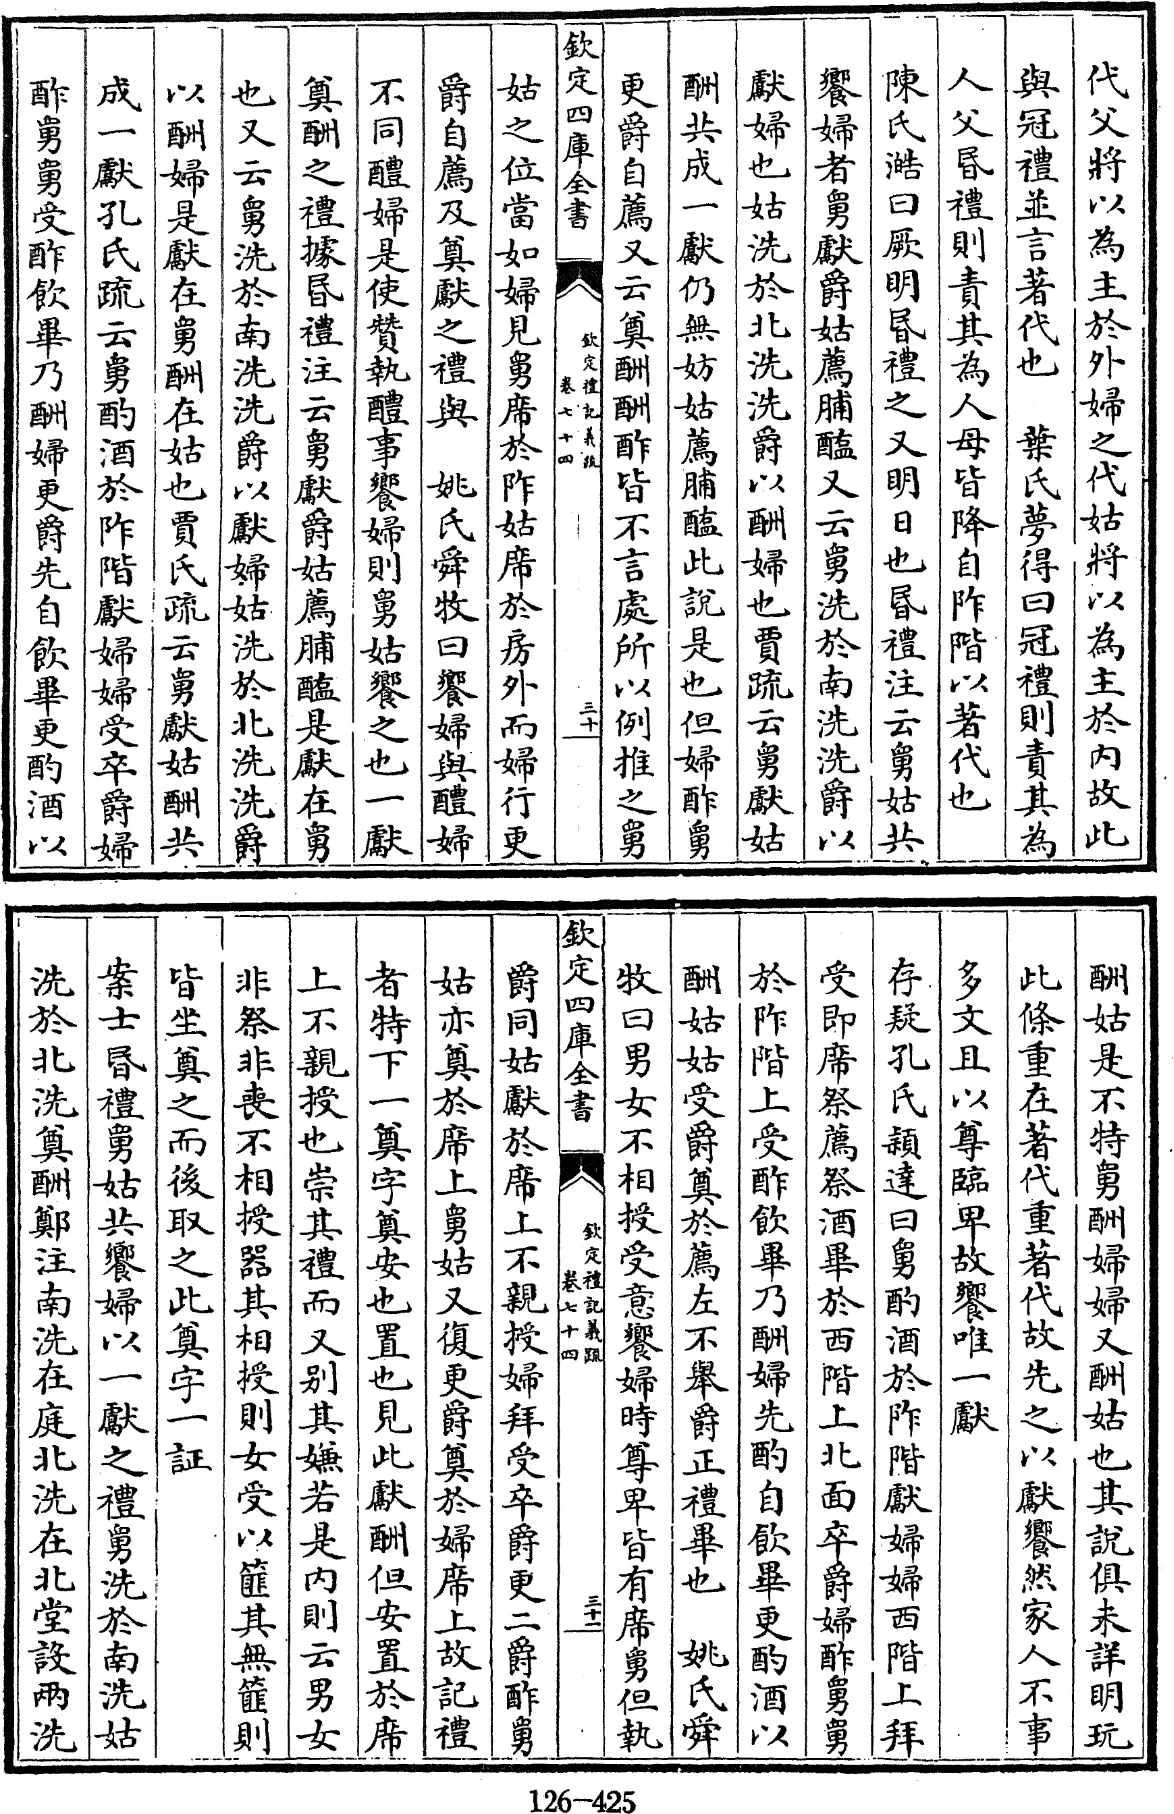 代父將以為主於外婦之代姑將以為主於內故此
與冠禮並言著代也　葉氏夢得曰冠禮則責其為
人父昬禮則責其為人母皆降自阼階以著代也
陳氏澔曰厥明昬禮之又明日也昬禮注云舅姑共
饗婦者舅獻爵姑薦脯醢又云舅洗於南洗洗爵以
獻婦也姑洗於北洗洗爵以酬婦也賈疏云舅獻姑
酬共成一獻仍無妨姑薦脯醢此說是也但婦酢舅
更爵自薦又云奠酬酬酢皆不言處所以例推之舅
欽定四庫全書
欽定禮記義疏
卷七十四
三十
姑之位當如婦見舅席於阼姑席於房外而婦行更
爵自薦及奠獻之禮與　姚氏舜牧曰饗婦與醴婦
不同醴婦是使贊執醴事饗婦則舅姑饗之也一獻
奠酬之禮據昬禮注云舅獻爵姑薦脯醢是獻在舅
也又云舅洗於南洗洗爵以獻婦姑洗於北洗洗爵
以酬婦是獻在舅酬在姑也賈氏疏云舅獻姑酬共
成一獻孔氏疏云舅酌酒於阼階獻婦婦受卒爵婦
酢舅舅受酢飲畢乃酬婦更爵先自飲畢更酌酒以
酬姑是不特舅酬婦婦又酬姑也其說俱未詳明玩
此條重在著代重著代故先之以獻饗然家人不事
多文且以尊臨卑故饗唯一獻
存疑孔氏穎達曰舅酌酒於阼階獻婦婦西階上拜
受即席祭薦祭酒畢於西階上北面卒爵婦酢舅舅
於阼階上受酢飲畢乃酬婦先酌自飲畢更酌酒以
酬姑姑受爵奠於薦左不舉爵正禮畢也　姚氏舜
牧曰男女不相授受意饗婦時尊卑皆有席舅但執
欽定四庫全書
欽定禮記義疏
卷七十四
三十一
爵同姑獻於席上不親授婦拜受卒爵更二爵酢舅
姑亦奠於席上舅姑又復更爵奠於婦席上故記禮
者特下一奠字奠安也置也見此獻酬但安置於席
上不親授也崇其禮而又別其嫌若是內則云男女
非祭非喪不相授器其相授則女受以篚其無篚則
皆坐奠之而後取之此奠字一証
案士昬禮舅姑共饗婦以一獻之禮舅洗於南洗姑
洗於北洗奠酬鄭注南洗在庭北洗在北堂設兩洗
126-425